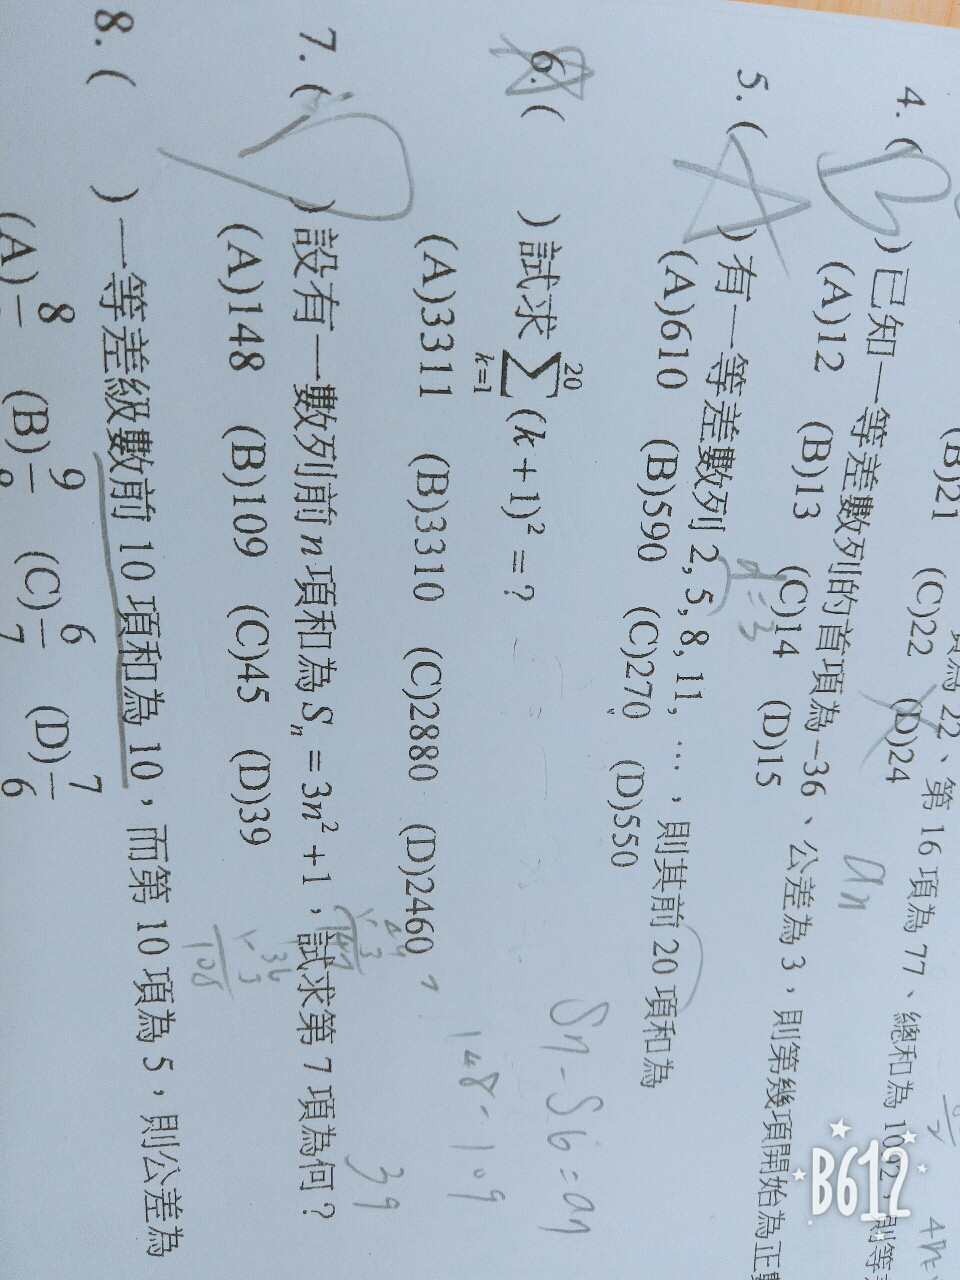 (B)21 (C)22 (D)24
項為 22、第 16 項為 77、總和為 1092，則等
4. ( B ) 已知一等差數列的首項為 -36、公差為 3，則第幾項開始為正
(A)12 (B)13 (C)14 (D)15
an
4n=
5. ( A ) 有一等差數列 2, 5, 8, 11, …，則其前 20 項和為
d=3
(A)610 (B)590 (C)270 (D)550
6. ( ) 試求 \sum_{k=1}^{20} (k+1)² = ?
A
Sn-S6=an
(A)3311 (B)3310 (C)2880 (D)2460
148-109
7. ( D ) 設有一數列前 n 項和為 Sₙ = 3n² + 1，試求第 7 項為何？
39
49
×3
147
36
×3
108
(A)148 (B)109 (C)45 (D)39
8. ( ) 一等差級數前 10 項和為 10，而第 10 項為 5，則公差為
(A)8/ (B)9/ (C)6/7 (D)7/6
B612